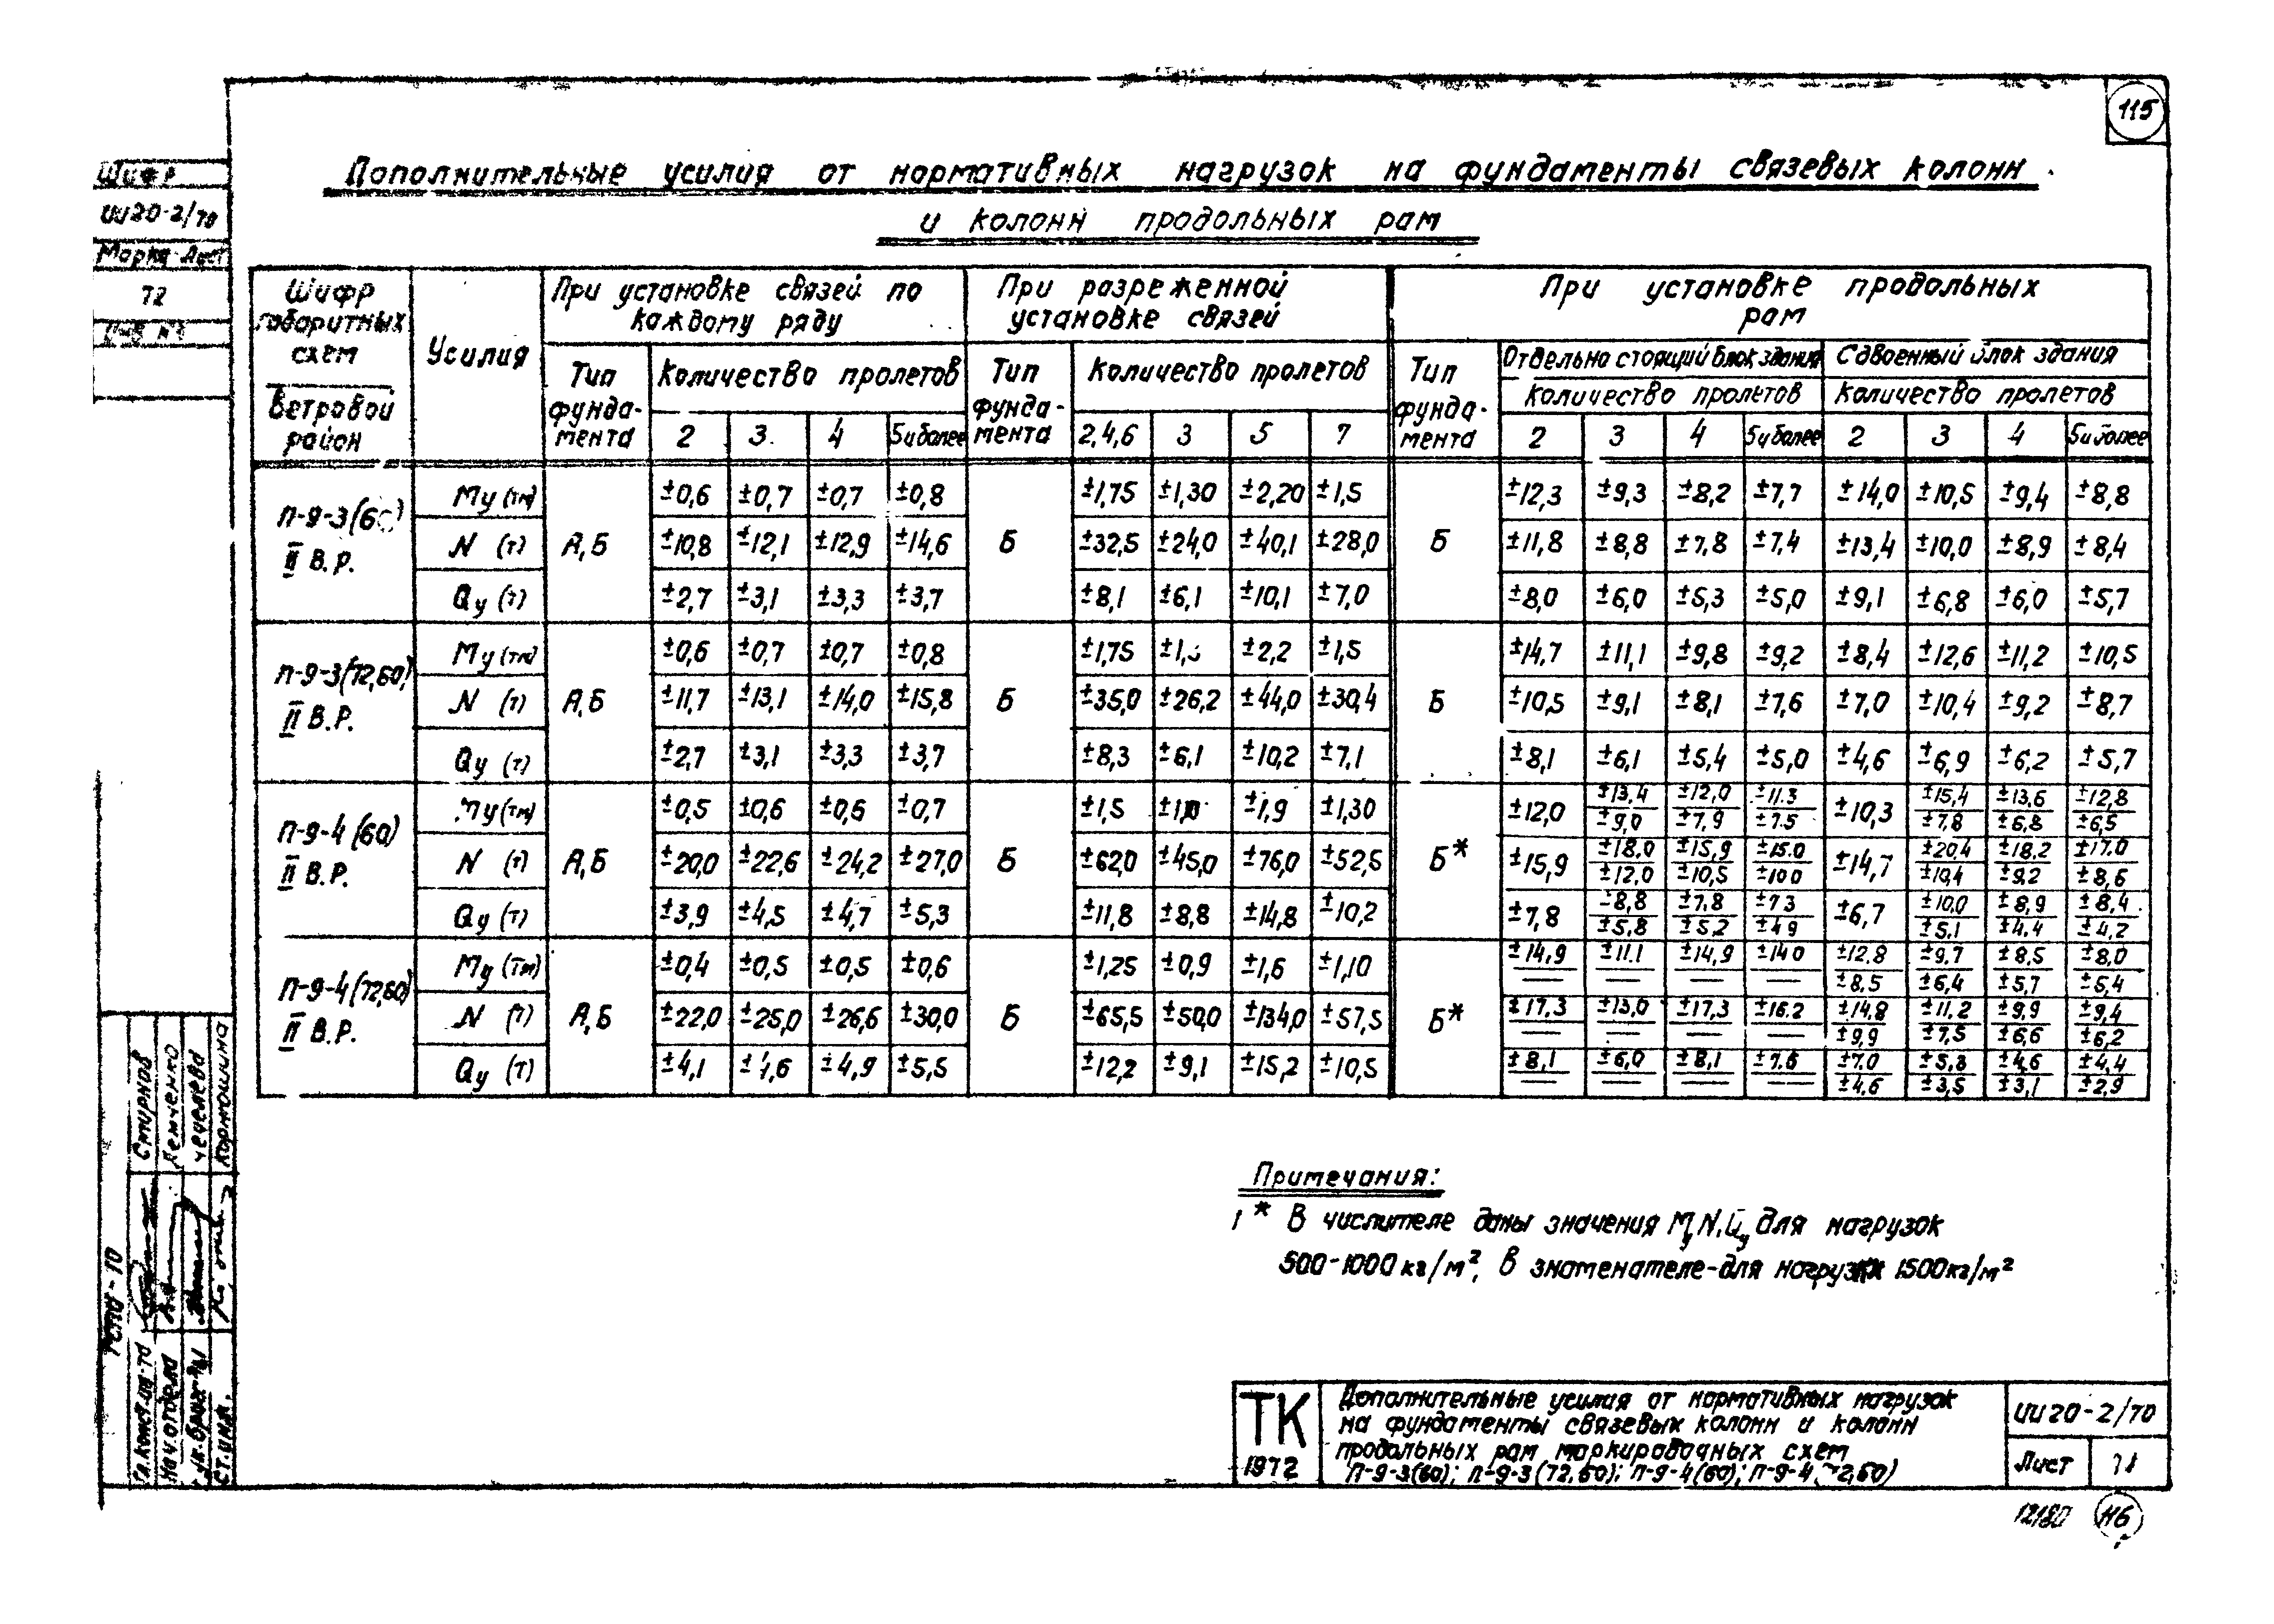 115
Дополнительные усилия от нормативных нагрузок на фундаменты связевых колонн
и колонн продольных рам
Шифр
ИИ20-2/70
Марка-Лист
72
Шифр габаритных схем
Ветровой район
Усилия
При установке связей по каждому ряду
При разреженной установке связей
При установке продольных рам
Тип фунда-мента
Количество пролетов
Тип фунда-мента
Количество пролетов
Тип фунда-мента
Отдельно стоящий блок здания
Сдвоенный блок здания
Количество пролетов
Количество пролетов
2 3 4 5и более 2,4,6 3 5 7 2 3 4 5и более 2 3 4 5и более
П-9-3(60) II В.Р.
Му (тм) ±0,6 ±0,7 ±0,7 ±0,8 ±1,75 ±1,30 ±2,20 ±1,5 ±12,3 ±9,3 ±8,2 ±7,7 ±14,0 ±10,5 ±9,4 ±8,8
N (т) А,Б ±10,8 ±12,1 ±12,9 ±14,6 Б ±32,5 ±24,0 ±40,1 ±28,0 Б ±11,8 ±8,8 ±7,8 ±7,4 ±13,4 ±10,0 ±8,9 ±8,4
Qу (т) ±2,7 ±3,1 ±3,3 ±3,7 ±8,1 ±6,1 ±10,1 ±7,0 ±8,0 ±6,0 ±5,3 ±5,0 ±9,1 ±6,8 ±6,0 ±5,7
П-9-3(72,60) II В.Р.
Му (тм) ±0,6 ±0,7 ±0,7 ±0,8 ±1,75 ±2,2 ±1,5 ±14,7 ±11,1 ±9,8 ±9,2 ±8,4 ±12,6 ±11,2 ±10,5
N (т) А,Б ±11,7 ±13,1 ±14,0 ±15,8 Б ±35,0 ±26,2 ±44,0 ±30,4 Б ±10,5 ±9,1 ±8,1 ±7,6 ±7,0 ±10,4 ±9,2 ±8,7
Qу (т) ±2,7 ±3,1 ±3,3 ±3,7 ±8,3 ±6,1 ±10,2 ±7,1 ±8,1 ±6,1 ±5,4 ±5,0 ±4,6 ±6,9 ±6,2 ±5,7
П-9-4(60) II В.Р.
Му(тм) ±0,5 ±0,6 ±0,6 ±0,7 ±1,5 ±1,9 ±1,30 ±12,0 ±13,4 ±12,0 ±11.3 ±10,3 ±15,4 ±13,6 ±12,8
±9,0 ±7,9 ±7.5 ±7,8 ±6,8 ±6,5
N (т) А,Б ±20,0 ±22,6 ±24,2 ±27,0 Б ±62,0 ±45,0 ±76,0 ±52,5 Б* ±15,9 ±18,0 ±15,9 ±15.0 ±14,7 ±20,4 ±18,2 ±17.0
±12,0 ±10,5 ±10 0 ±10,4 ±9,2 ±8,6
Qу (т) ±3,9 ±4,5 ±4,7 ±5,3 ±11,8 ±8,8 ±14,8 ±10,2 ±7,8 ±8,8 ±7,8 ±7 3 ±6,7 ±10,0 ±8,9 ±8,4
±5,8 ±5,2 ±4 9 ±5,1 ±4,4 ±4,2
П-9-4(72,60) II В.Р.
Му (тм) ±0,4 ±0,5 ±0,5 ±0,6 ±1,25 ±0,9 ±1,6 ±1,10 ±14,9 ±11.1 ±14,9 ±14 0 ±12,8 ±9,7 ±8,5 ±8,0
— — — — ±8,5 ±6,4 ±5,7 ±5,4
N (т) А,Б ±22,0 ±25,0 ±26,6 ±30,0 Б ±65,5 ±50,0 ±134,0 ±57,5 Б* ±17,3 ±13,0 ±17,3 ±16.2 ±14,8 ±11,2 ±9,9 ±9,4
— — — — ±9,9 ±7,5 ±6,6 ±6,2
Qу (т) ±4,1 ±4,9 ±5,5 ±12,2 ±9,1 ±15,2 ±10,5 ±8,1 ±6,0 ±8,1 ±7.6 ±7.0 ±5,3 ±4,6 ±4,4
— — — — ±4,6 ±3,5 ±3,1 ±2,9
Примечания:
1 * В числителе даны значения Му N, Qу для нагрузок
500-1000 кг/м², в знаменателе-для нагрузки 1500кг/м²
Смирнов
Демченко
Корношина
Гл. конст. ОП-10
Нач. отдела
Ст. инж.
ТК
1972
Дополнительные усилия от нормативных нагрузок
на фундаменты связевых колонн и колонн
продольных рам маркировочных схем
П-9-3(60); П-9-3(72,60); П-9-4(60); П-9-4
ИИ20-2/70
Лист
12180
116